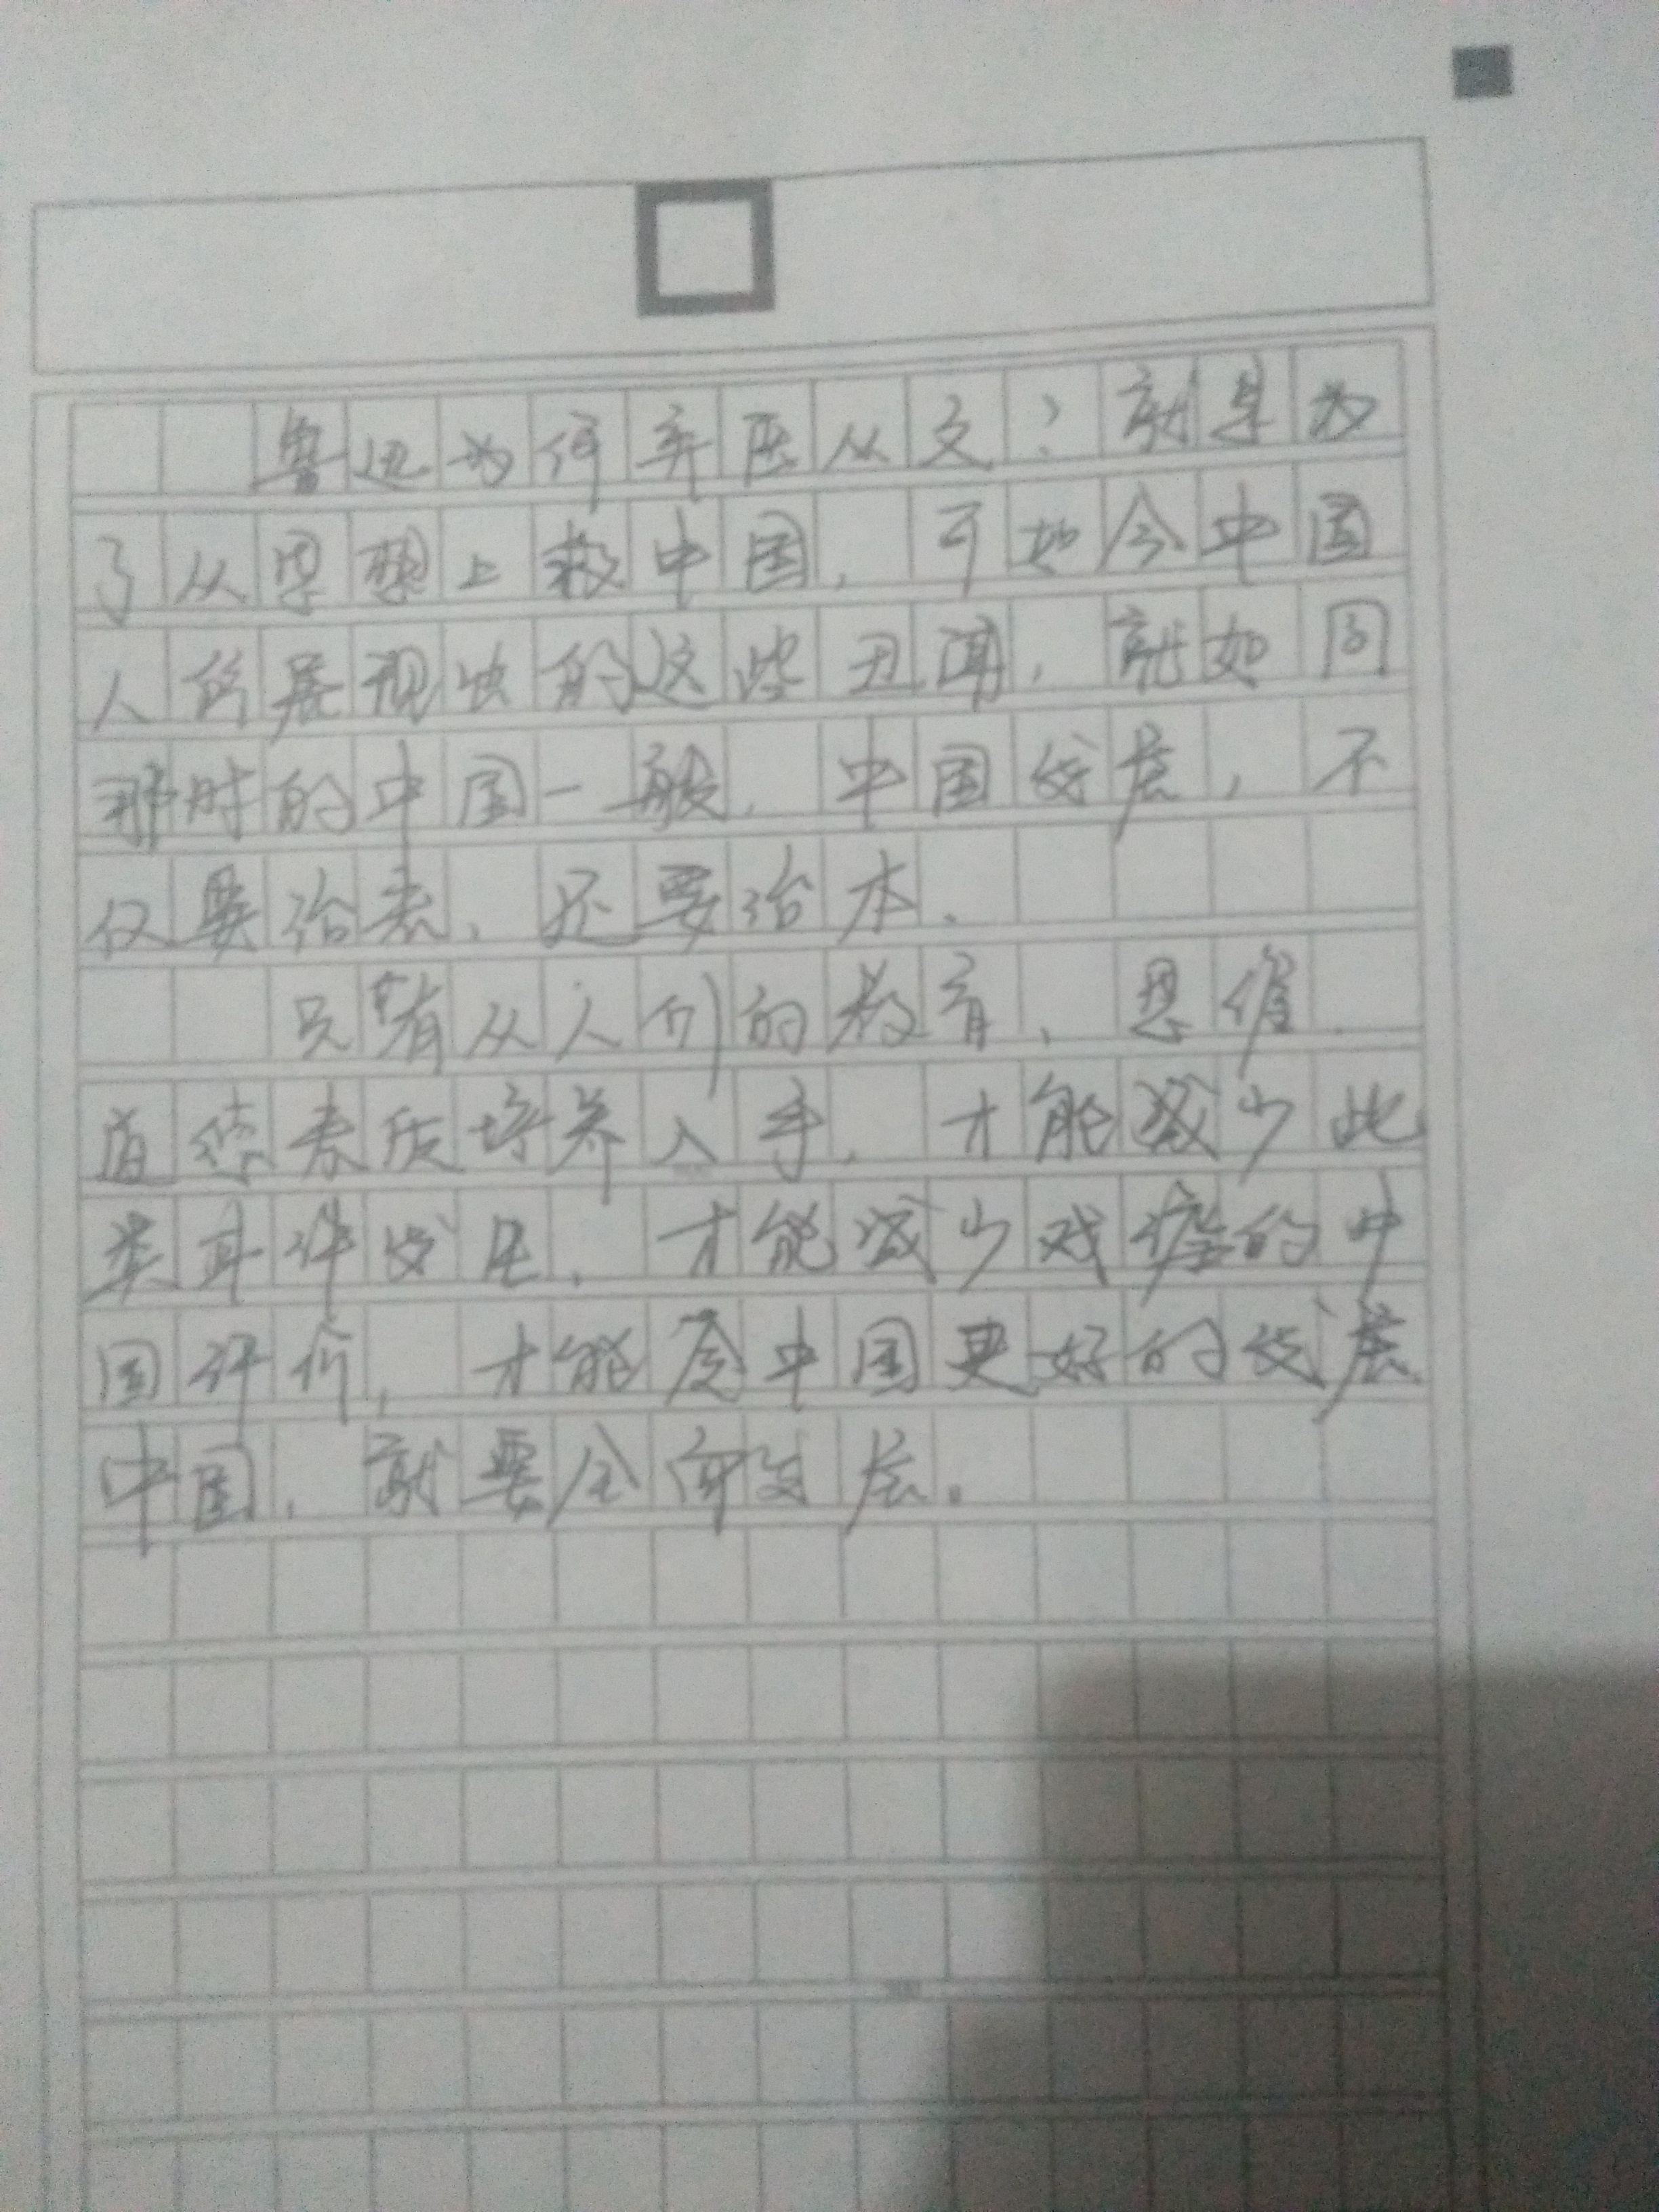 鲁迅为何弃医从文？就是为
了从思想上救中国，可如今中国
人所展现出的这些丑闻，就如同
那时的中国一般，中国发展，不
仅要治表，还要治本。
只有从人们的教育、思维、
道德素质培养入手，才能减少此
类事件发生，才能减少戏谑的中
国评价，才能度中国更好的发展
中国，就要全面发展。